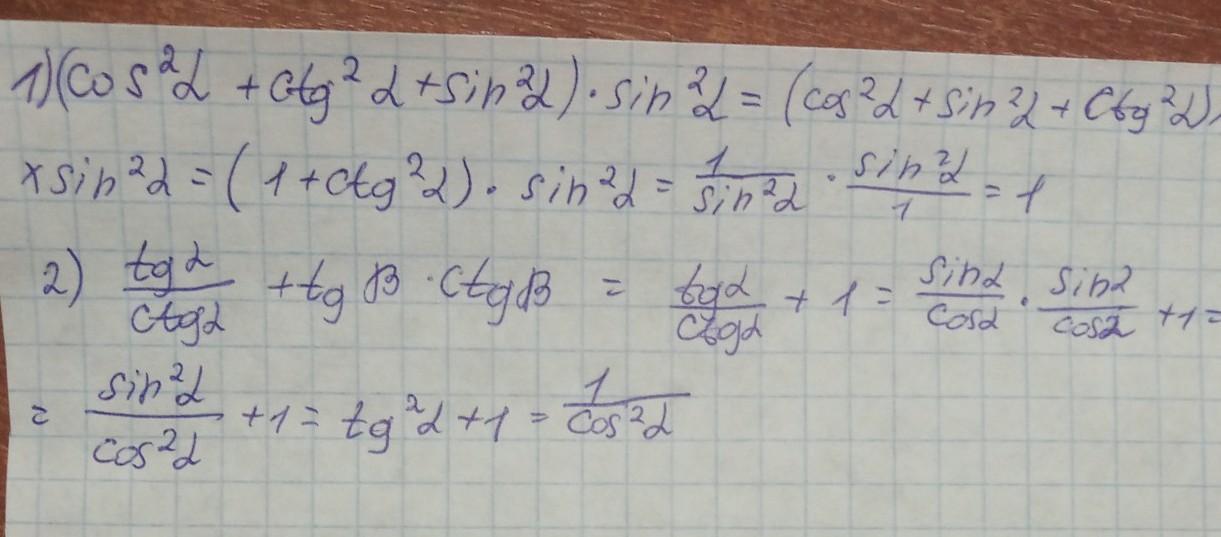 1) (cos²α + ctg²α + sin²α) · sin²α = (cos²α + sin²α + ctg²α) ×
× sin²α = (1 + ctg²α) · sin²α = 1/sin²α · sin²α/1 = 1
2) tgα/ctgα + tgβ · ctgβ = tgα/ctgα + 1 = sinα/cosα · sinα/cosα + 1 =
= sin²α/cos²α + 1 = tg²α + 1 = 1/cos²α